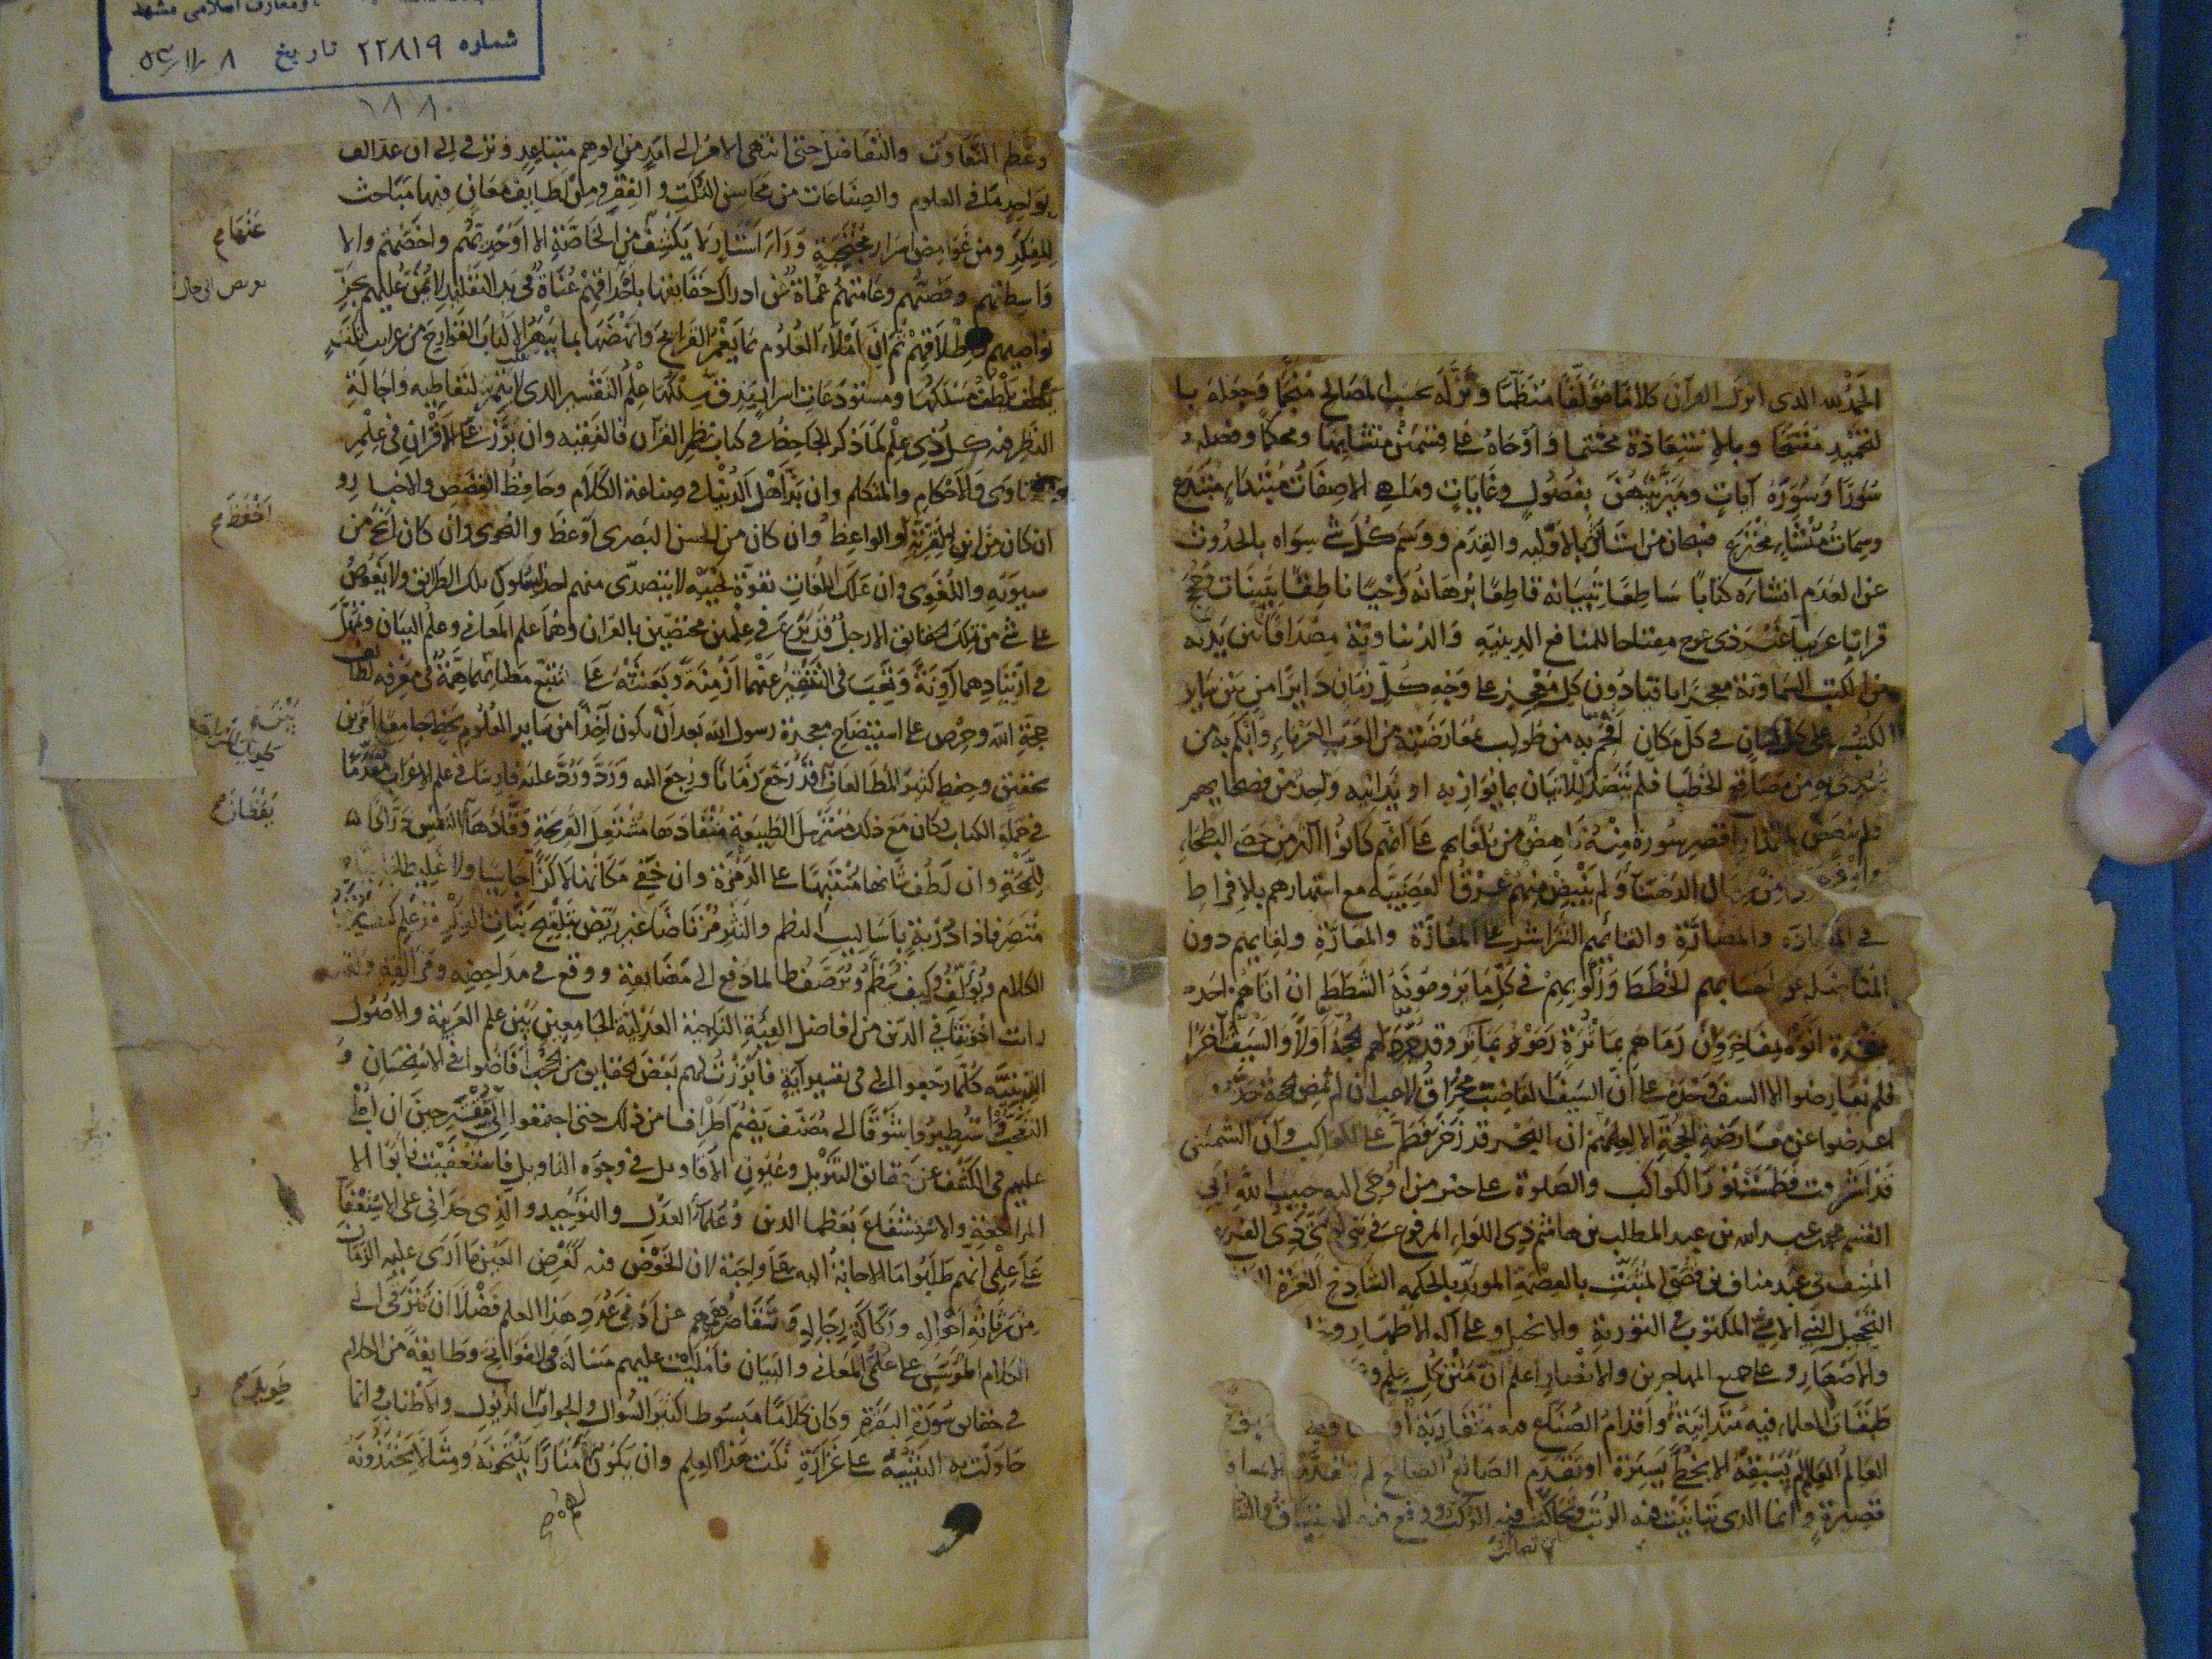 الحمد لله الذى انزل القرآن كلاما مؤلفا منظما ونزله بحسب المصالح منجما وجعله با
لتحميد مفتتحا وبالاستعاذة مختتما واوحاه على قسمين متشابها ومحكما وفصله
سورا وسوره آيات وميز بينهن بفصول وغايات وماهى الا صفات مبتداء مبتدع
وسمات منشاء مخترع فسبحان من استأثر بالاولية والقدم ووسم كل شى سواه بالحدوث
عن العدم انشاره كتابا ساطعا تبيانه قاطعا برهانه وحيا ناطقا ببينات وحجج
قرانا عربيا غير ذى عوج مفتاحا للمنافع الدينية والدنياوية مصداقا لما بين يديه
من الكتب السماوية معجزا باقيا دون كل معجز على وجه كل زمان دايرا من بين ساير ا
لكتب على كل لسان فى كل مكان افحم به من طولب بمعارضته من العرب العرباء وابكم به من
تحدى به من مصاقع الخطبا فلم يتصد للاتيان بما يوازيه او يدانيه واحد من فصحايهم
ولم ينهض لمقدار اقصر سورة منه ناهض من بلغايهم على انهم كانوا اكثر من حصى البطحاء
رمال الدهنا ولم ينبض منهم عرق العصبية مع اشتهارهم بالافراط
فى المضادة والمضارة والقايهم الشراشر على المعازة والمعارة ولقايهم دون
المناضلة عن احسابهم الخطط وركوبهم فى كل ما يرومونه الشطط ان اتاهم احد
بمفخرة اتوه بمفاخر وان رماهم بماثرة رموه بمآثر وقد جرد لهم الحجة اولا والسيف آخرا
فلم يعارضوا الا السيف وحده على ان السيف القاضب مخراق لاعب ان لم تمض الحجة حده
اعرضوا عن معارضة الحجة الا لعلمهم ان البحر قد زخر فطم على الكواكب وان الشمس
قد اشرقت فطمست نور الكواكب والصلوة على خير من اوحى اليه حبيب الله ابى
القسم محمد بن عبد الله بن عبد المطلب بن هاشم ذى اللواء المرفوع فى بنى لوى ذى الفرع
المنيف فى عبد مناف بن قصى المثبت بالعصمة المويد بالحكمة الشادخ الغرة
التحجيل النبى الامى المكتوب فى التورية والانجيل وعلى آله الاطهار
والاصهار وعلى جميع المهاجرين والانصار اعلم ان متن كل علم و
طبقات العلماء فيه متدانية واقدام الصناع فيه متقاربة
العالم العالم لم يسبقه الا بخطى يسيرة او تقدم الصانع الصانع لم يتقدمه الا
قصيرة وانما الذى تباينت فيه الرتب وتحاكت فيه الركب ووقع فيه الاستباق والتنا
وعظم التفاوت والتفاضل حتى انتهى الامر الى امد من الوهم متباعد وترقى الى ان عد الف
بواحد ما فى العلوم والصناعات من محاسن النكت والفقر ومن لطايف معان فيها مباحث
للفكر ومن غوامض اسرار محتجبة وراء استار لا يكشف من الخاصة الا اوحدهم واخصهم والا
واسطتهم وفصهم وعامتهم عماة عن ادراك حقايقها باحداقهم عناة فى يد التقليد لا يمن عليهم بجز
نواصيهم واطلاقهم ثم ان املأ العلوم بما يغمر القرايح وانهضها بما يبهر الالباب القوارح من غرايب نكت
يلطف مسلكها ومستودعات اسرار يدق سلكها علم التفسير الذى لا يتم لتعاطيه واجالة
النظر فيه كل ذى علم كما ذكر الجاحظ فى كتاب نظم القرآن فالفقيه وان برز على الاقران فى علم
الفتاوى والاحكام والمتكلم وان بز اهل الدنيا فى صناعة الكلام وحافظ القصص والاخبار و
ان كان من ابن القرية والواعظ وان كان من الحسن البصرى اوعظ والنحوى وان كان انحى من
سيبويه واللغوى وان علك اللغات بقوة لحييه لا يتصدى منهم احد لسلوك تلك الطرايق ولا يغوص
على شى من تلك الحقايق الا رجل قد برع فى علمين مختصين بالقران وهما علم المعانى وعلم البيان وتمهل
فى ارتيادهما آونة وتعب فى التنقير عنهما ازمنة وبعثته على تتبع مظانهما همة فى معرفة لطائف
حجة الله وحرص على استيضاح معجزة رسول الله بعد ان يكون آخذا من ساير العلوم بحظ جامعا بين امرين
تحقيق وحفظ كثير المطالعات قد رجع زمانا ورجع اليه ورد ورد عليه فارسا فى علم الاعراب مقدما
فى حملة الكتاب وكان مع ذلك مسترسل الطبيعة منقادها مشتعل القريحة وقادها يقظان النفس دراكا
للمحة وان لطف شانها منتبها على الرمزة وان خفى مكانها لا كزا جاسيا ولا غليظا جافيا
متصرفا ذا دربة باساليب النظم والنثر مرتاضا غير ريض بتلقيح بنات الفكر قد علم كيف يرتب
الكلام ويؤلف وكيف ينظم ويرصف طالما دفع الى مضايقه ووقع فى مداحضه ومزالقه ولقد
رايت اخوتنا فى الدين من افاضل الفئة الناجية العدلية الجامعين بين علم العربية والاصول
الدينية كلما رجعوا الى فى تفسير آية فابرزت لهم بعض الحقايق من الحجب افاضوا فى الاستحسان و
التعجب واستطيروا شوقا الى مصنف يضم اطرافا من ذلك حتى اجتمعوا الى مقترحين ان املى
عليهم فى الكشف عن حقائق التنزيل وعيون الاقاويل فى وجوه التاويل فاستعفيت فابوا الا
المراجعة والاستشفاع بعظما الدين وعلماء العدل والتوحيد والذى حدانى على الاستعفا
على علمى انهم طلبوا ما الاجابة اليه على واجبة لان الخوض فيه كفرض العين ما ارى عليه الزمان
من رثاثة احواله وركاكة رجاله وتقاصر هممهم عن ادنى عدد هذا العلم فضلا ان تترقى الى
الكلام المؤسس على علمى المعانى والبيان فامليت عليهم مسالة فى الفواتح وطايفة من الكلام
فى حقايق سورة البقرة وكان كلاما مبسوطا كثير السوال والجواب طويل الذيول والاذناب وانما
حاولت به التنبيه على غزارة نكت هذا العلم وان يكون لهم منارا ينتحونه ومثالا يحتذونه
شماره ۲۲۸۱۹ تاريخ
۱۸۸۰